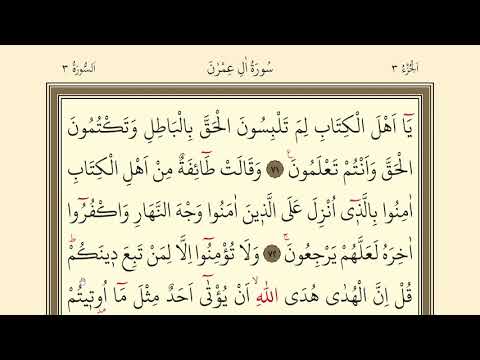 اَلْجُزْءُ ٣ سُورَةُ اٰلِ عِمْرٰنَ اَلسُّورَةُ ٣
يَٓا اَهْلَ الْكِتَابِ لِمَ تَلْبِسُونَ الْحَقَّ بِالْبَاطِلِ وَتَكْتُمُونَ
الْحَقَّ وَاَنْتُمْ تَعْلَمُونَ۟ ﴿٧١﴾ وَقَالَتْ طَٓائِفَةٌ مِنْ اَهْلِ الْكِتَابِ
اٰمِنُوا بِالَّذ۪ٓي اُنْزِلَ عَلَى الَّذ۪ينَ اٰمَنُوا وَجْهَ النَّهَارِ وَاكْفُرُٓوا
اٰخِرَهُ لَعَلَّهُمْ يَرْجِعُونَۚ ﴿٧٢﴾ وَلَا تُؤْمِنُٓوا اِلَّا لِمَنْ تَبِعَ د۪ينَكُمْۜ
قُلْ اِنَّ الْهُدٰى هُدَى اللّٰهِۙ اَنْ يُؤْتٰٓى اَحَدٌ مِثْلَ مَٓا اُو۫ت۪يتُمْ